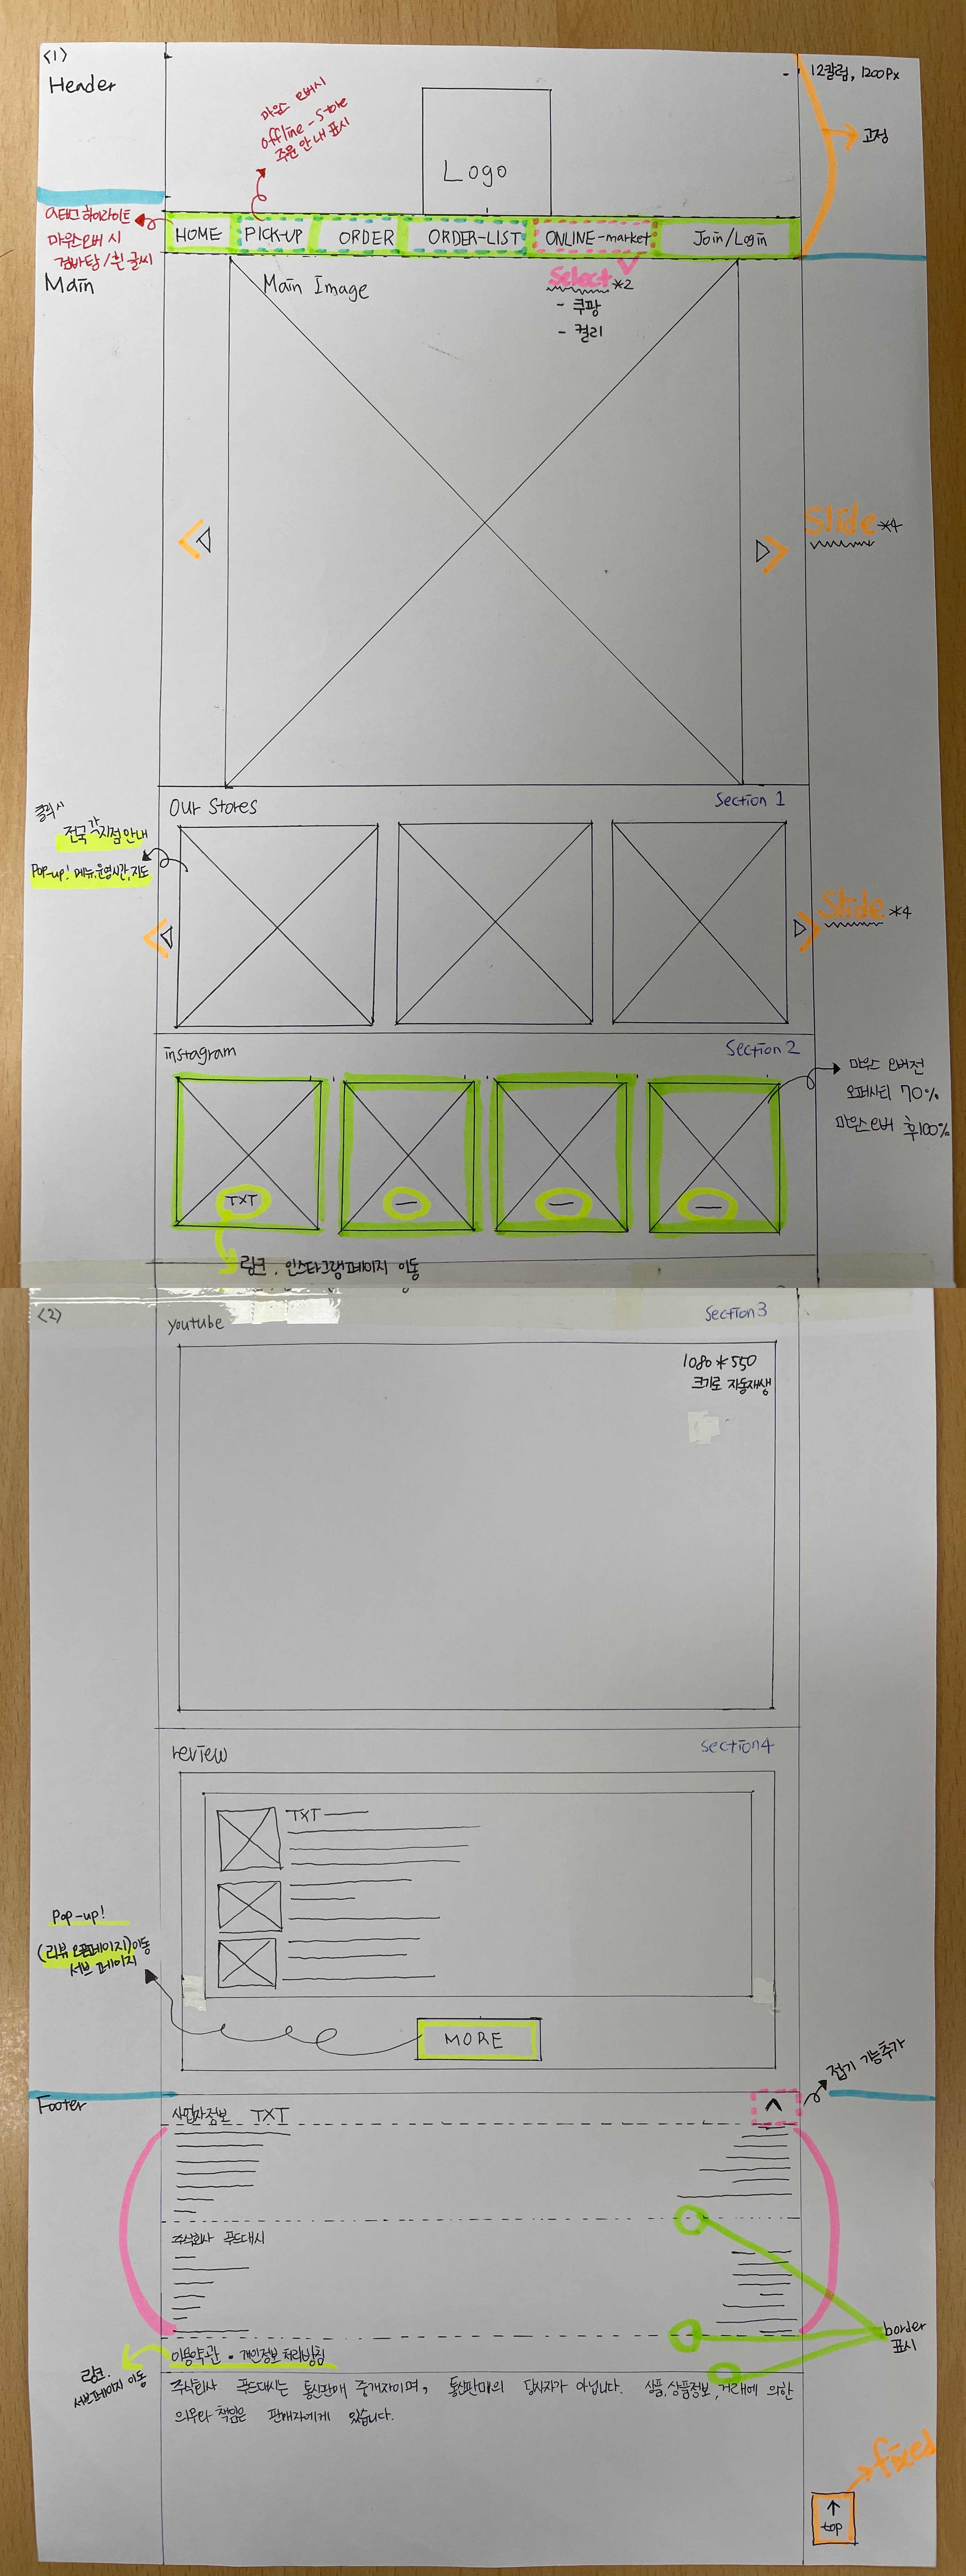 <1>
Header
12칼럼, 1200Px
고정
마우스 오버시
offline-Store
주문 안내 표시
Logo
a태그 하이라이트
마우스오버 시
검바탕/흰 글씨
HOME
PICK-UP
ORDER
ORDER-LIST
ONLINE-market
Join/Login
Main
Main Image
Select *2
- 쿠팡
- 컬리
Slide *4
Our Stores
Section 1
클릭시
전국 각 지점 안내
Pop-up! 메뉴, 운영시간, 지도
Slide *4
instagram
Section 2
마우스 오버전
오퍼시티 70%
마우스오버 후 100%
TXT
링크. 인스타그램페이지 이동
<2>
youtube
Section3
1080 * 550
크기로 자동재생
review
Section4
TXT
Pop-up!
(리뷰 오픈페이지)이동
서브 페이지
MORE
접기 기능추가
Footer
사업자정보 TXT
^
주식회사 푸드대시
border
표시
이용약관 • 개인정보 처리방침
링크.
서브페이지 이동
주식회사 푸드대시는 통신판매 중개자이며, 통신판매의 당사자가 아닙니다. 상품, 상품정보, 거래에 의한
의무와 책임은 판매자에게 있습니다.
fixed
↑
top